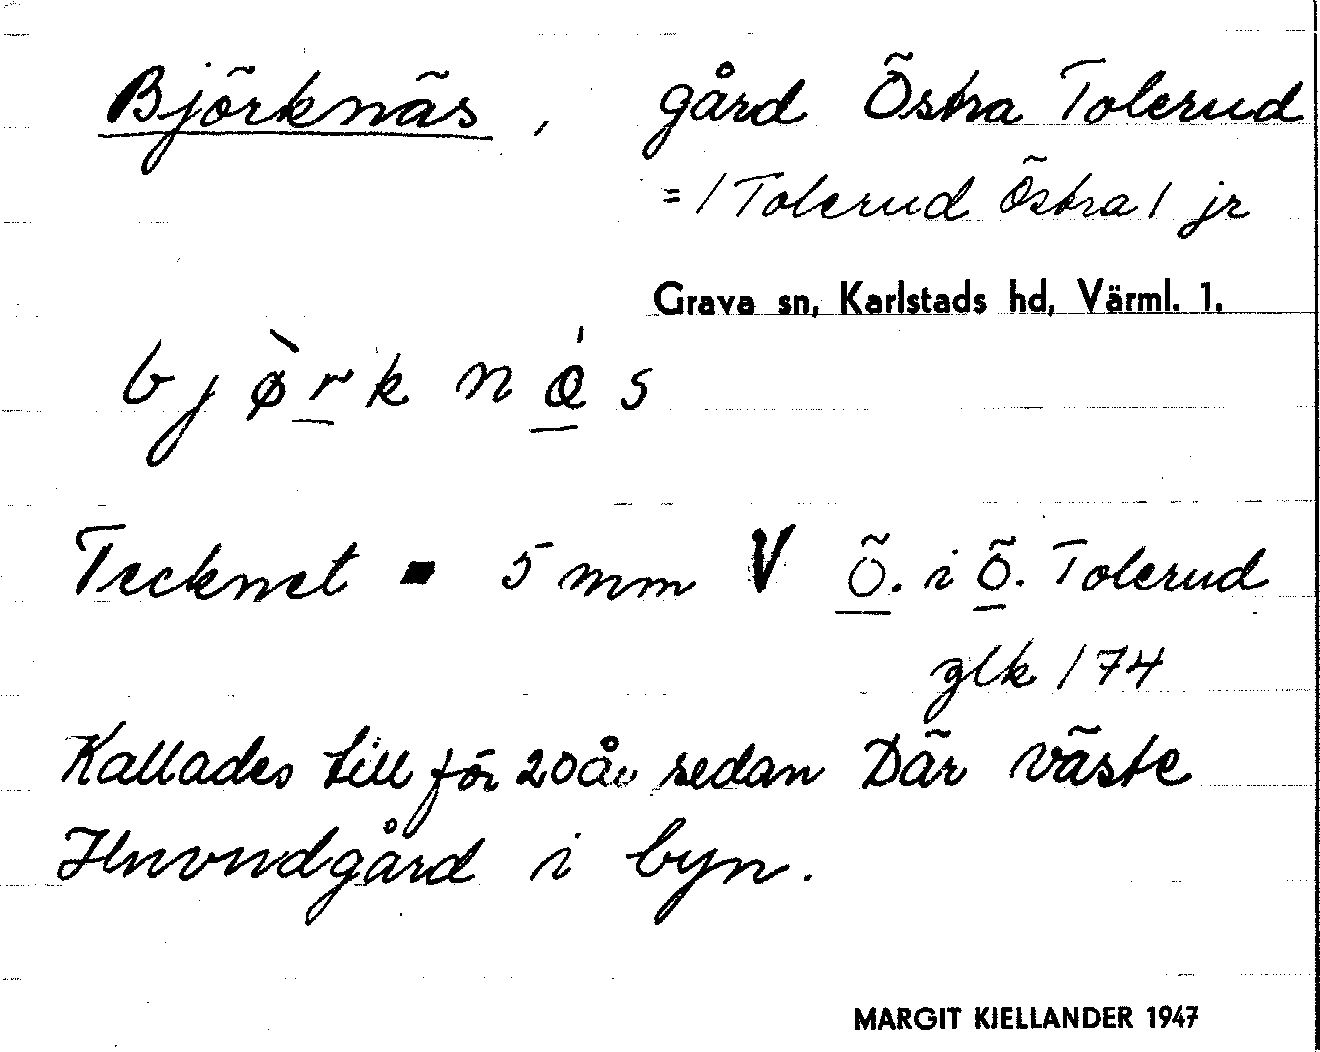 Björknäs, gård Östra Tolerud
= / Tolerud Östra / jr
Grava sn, Karlstads hd, Värml. 1.
bjø̀rknás
Tecknet ▪ 5 mm V Ö. i Ö. Tolerud
glk 174
Kallades till för 20 år sedan Där väste
Huvudgård i byn.
MARGIT KJELLANDER 1947